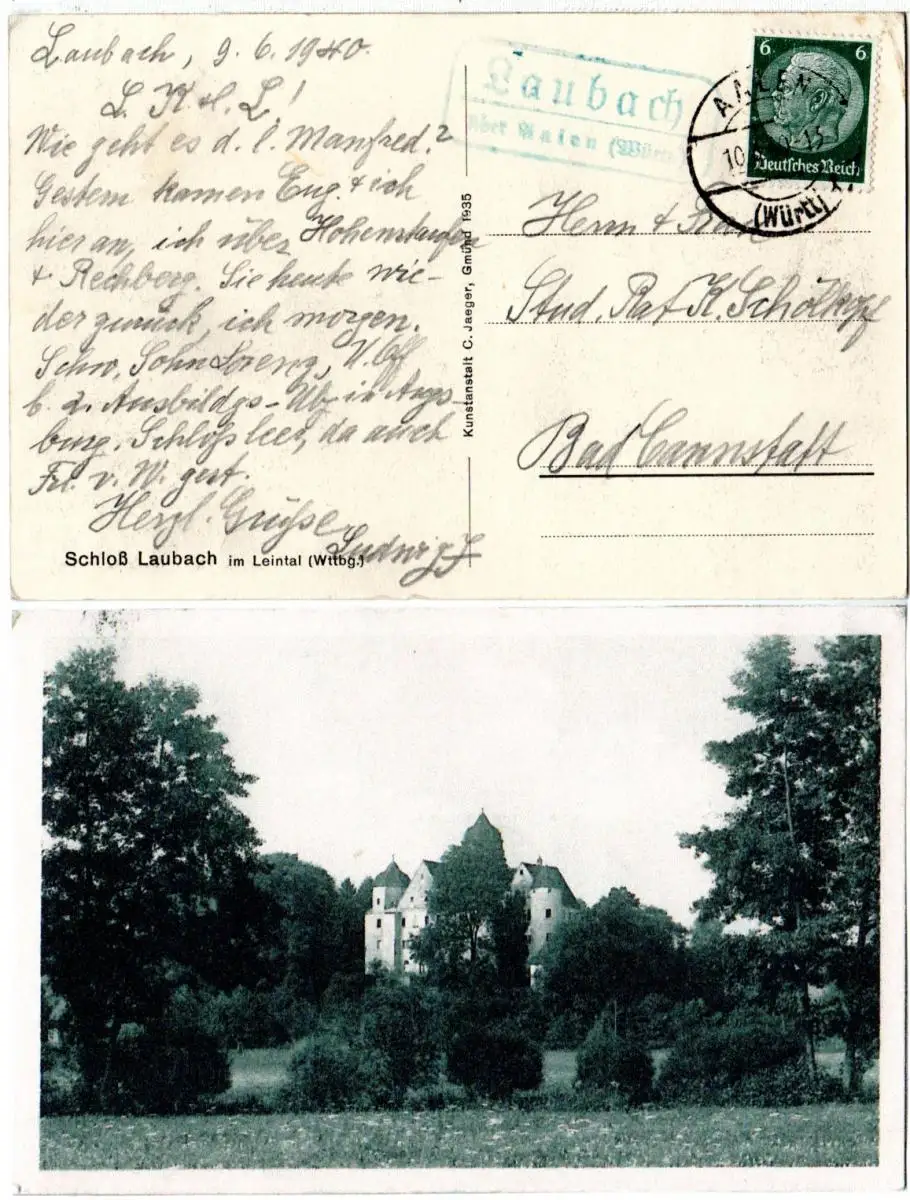 Laubach, 9.6.1940.
L. K. u. L.!
Wie geht es d. l. Manfred?
Gestern kamen Eug. + ich
hier an, ich über Hohenstaufen
+ Rechberg. Sie heute wie-
der zurück, ich morgen.
Schw. Sohn Lorenz, U.Off
b. 2. Ausbildgs-Üb. in Augs-
burg. Schloß leer, da auch
Frl. v. W. gest.
Herzl. Grüße
Ludwig
Schloß Laubach im Leintal (Wttbg.)
Kunstanstalt C. Jaeger, Gmünd 1935
Laubach
über Aalen (Württ.)
AALEN
10
(Württ)
6 6
Deutsches Reich
Herrn + Frau
Stud. Rat K. Schölkopf
Bad Cannstatt